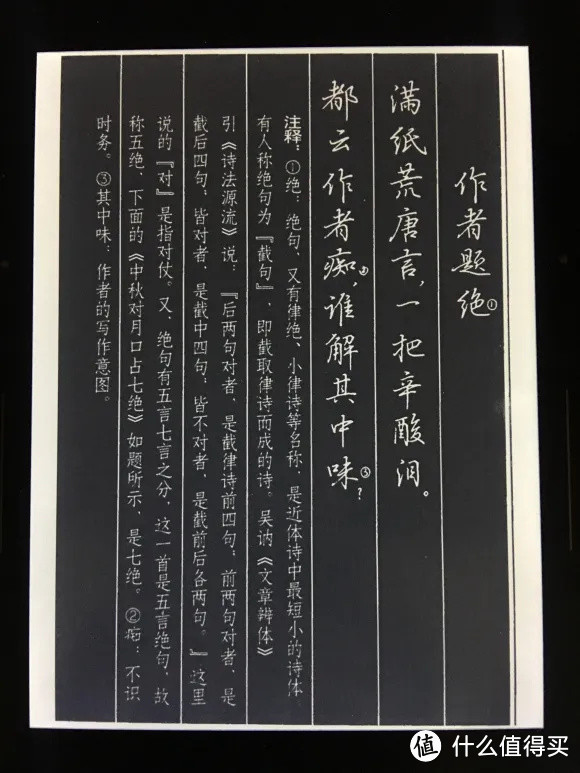 作者题绝①
满纸荒唐言，一把辛酸泪。
都云作者痴②，谁解其中味③？
注释：①绝：绝句，又有律绝、小律诗等名称，是近体诗中最短小的诗体，
有人称绝句为『截句』，即截取律诗而成的诗。吴讷《文章辨体》
引《诗法源流》说：『后两句对者，是截律诗前四句；前两句对者，是
截后四句；皆对者，是截中四句；皆不对者，是截前后各两句。』这里
说的『对』是指对仗。又，绝句有五言七言之分，这一首是五言绝句，故
称五绝，下面的《中秋对月口占七绝》如题所示，是七绝。②痴：不识
时务。③其中味：作者的写作意图。
值 什么值得买